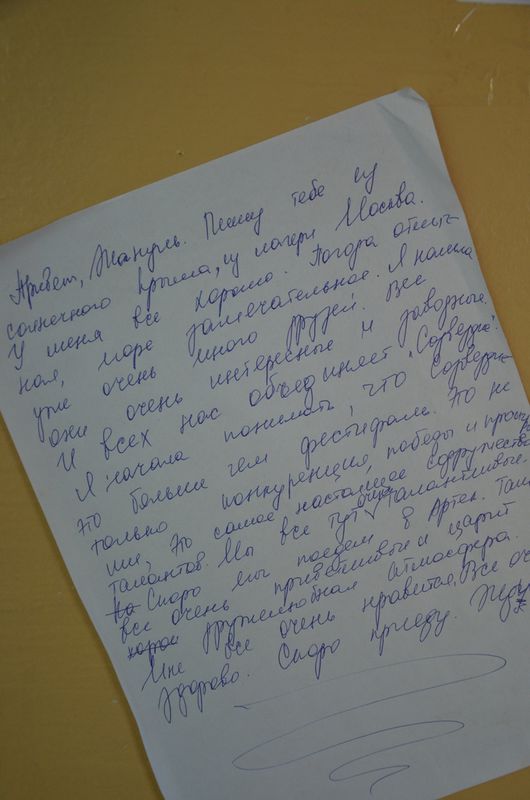 Привет, Жануль. Пишу тебе из
солнечного Крыма, из лагеря Москва.
У меня все хорошо. Погода отлич-
ная, море замечательное. Я нашла
уже очень много друзей. Все
они очень интересные и заводные.
И всех нас объединяет "Созвездие".
Я начала понимать, что Созвездие
это больше чем фестиваль. Это не
только конкуренция, победы и проигры-
ши, это самое настоящее содружество
талантов. Мы все тут очень талантливые.
На Скоро мы поедем в Артек. Там
все очень приветливые и царит
дружелюбная атмосфера.
Мне все очень нравится. Все оч
здорово. Скоро приеду. Жду